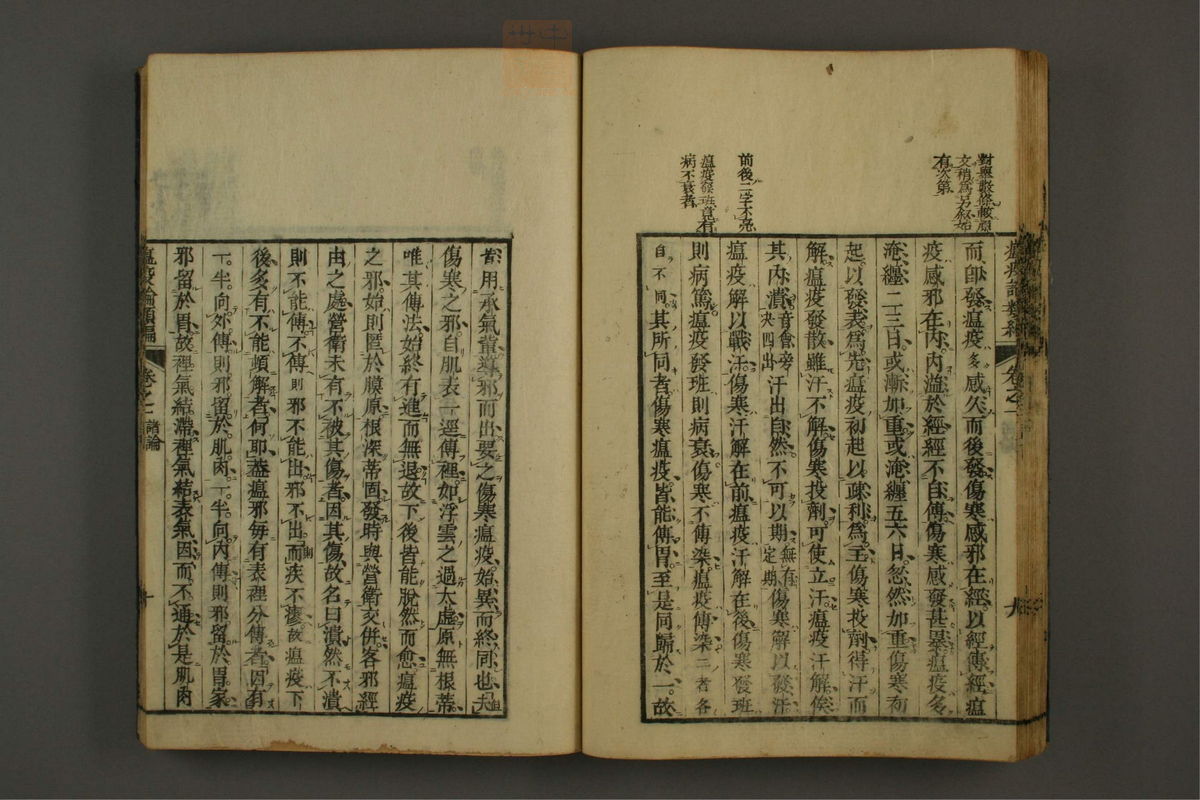 對與驟條較願
文稍為另叙始
有次第
前後二字不亮
瘟疫發班竟有
病不衰者
瘟疫論類編
卷之二
而卽發瘟疫多感久而後發傷寒感邪在經以經傳經瘟
疫感邪在內內溢於經經不自傳傷寒感發甚暴瘟疫多
淹纏二三日或漸加重或淹纏五六日忽然加重傷寒初
起以發表為先瘟疫初起以疎利為主傷寒投劑得汗而
解瘟疫發散雖汗不解傷寒投劑可使立汗瘟疫汗解俟
其內潰音會旁決四出汗出自然不可以期無有一定期傷寒解以發汗
瘟疫解以戰汗傷寒汗解在前瘟疫汗解在後傷寒發班
則病篤瘟疫發班則病衰傷寒不傳染瘟疫傳染二者各
自不同其所同者傷寒瘟疫皆能傳胃至是同歸於一故
皆用承氣輩導邪而出要之傷寒瘟疫始異而終同也夫但
傷寒之邪自肌表一逕傳裡如浮雲之過太虛原無根蒂
唯其傳法始終有進而無退故下後皆能脫然而愈瘟疫
之邪始則匿於膜原根深蒂固發時與營衛交併客邪經
由之處營衛未有不被其傷者因其傷故名曰潰然不潰
則不能傳不傳則邪不能出邪不出而疾不瘳故瘟疫下
後多有不能頓解者何耶蓋瘟邪每有表裡分傳者因有
一半向外傳則邪留於肌肉一半向內傳則邪留於胃家
邪留於胃故裡氣結滯裡氣結表氣因而不通於是肌肉
瘟疫論類編
卷之二
諸論
十